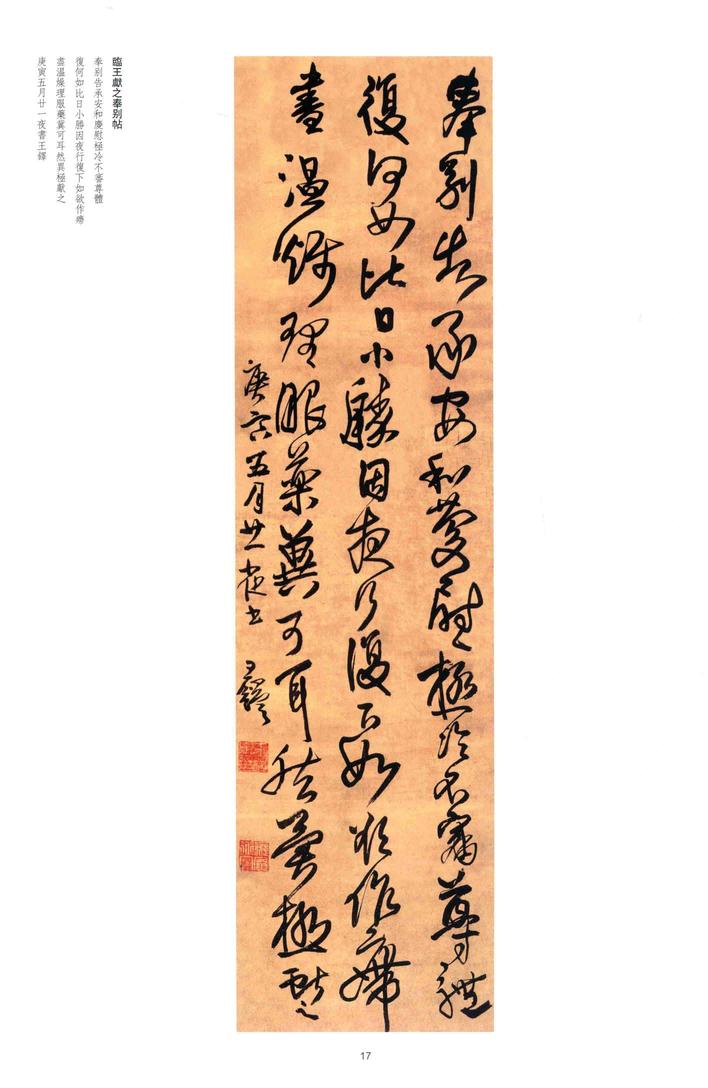 臨王獻之奉別帖
奉別告承安和慶慰極冷不審尊體
復何如比日小勝因夜行復下如欲作
盡溫燥理服藥冀可耳然異極獻之
庚寅五月廿一夜書王鐸
奉別告承安和慶慰極冷不審尊體
復何如比日小勝因夜行復下如欲作
盡溫燥理服藥冀可耳然異極獻之
庚寅五月廿一夜書王鐸
17